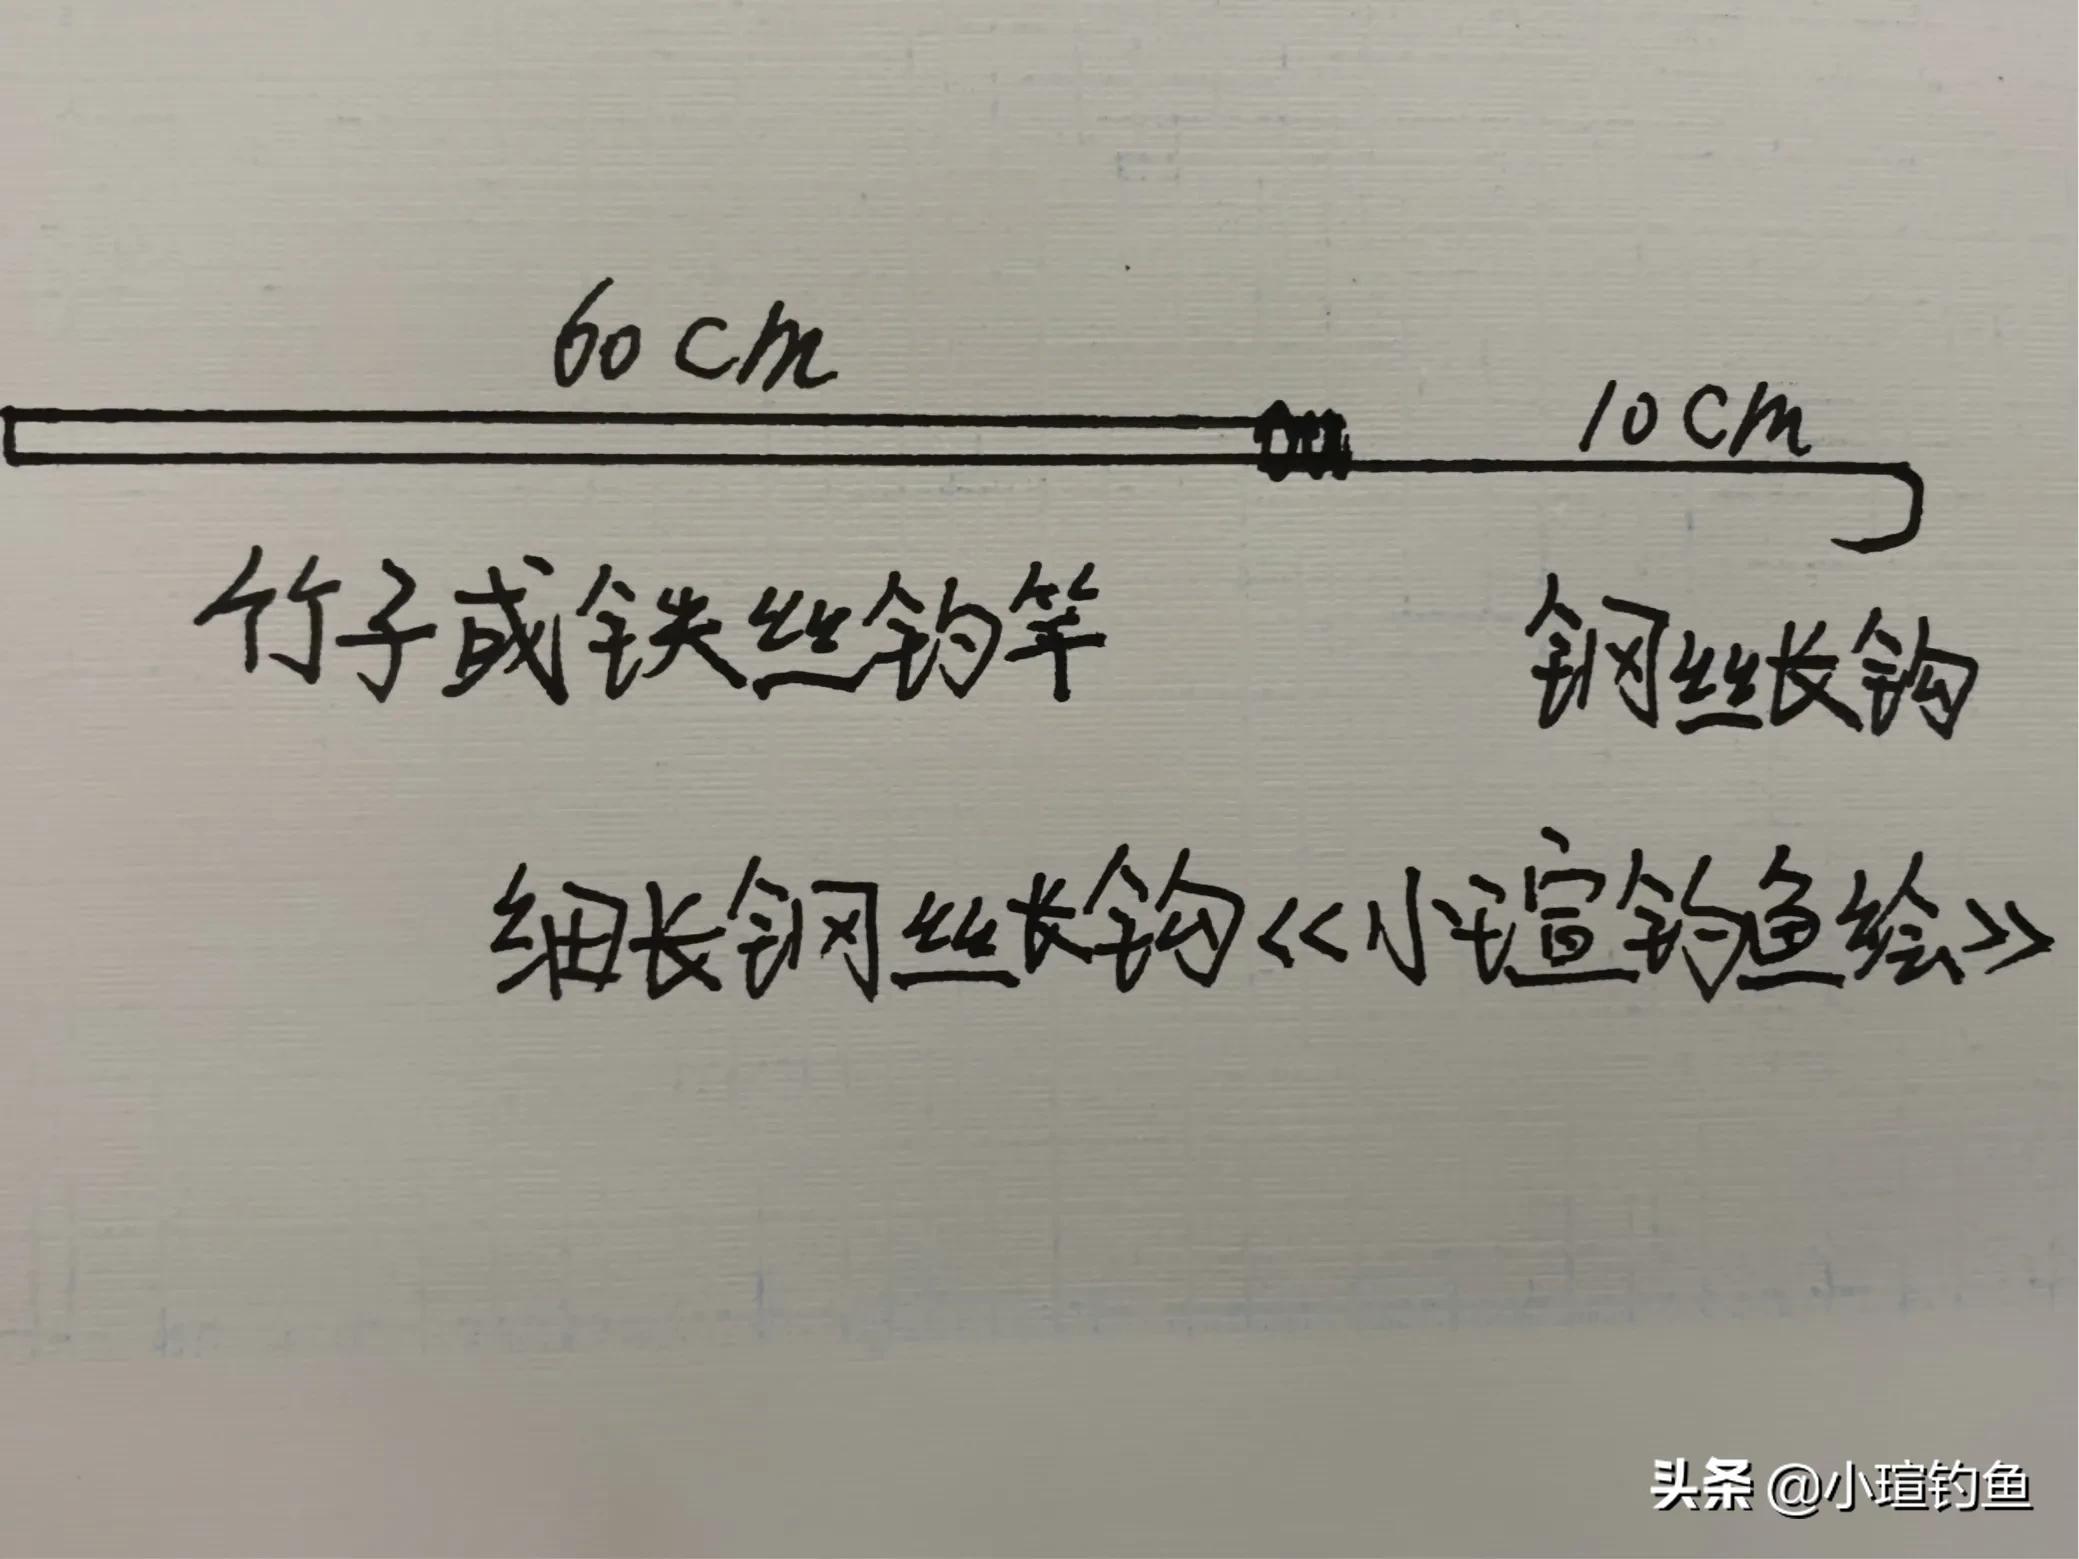 60cm
10cm
竹子或铁丝钓竿
钢丝长钩
细长钢丝长钩《小瑄钓鱼绘》
头条 @小瑄钓鱼